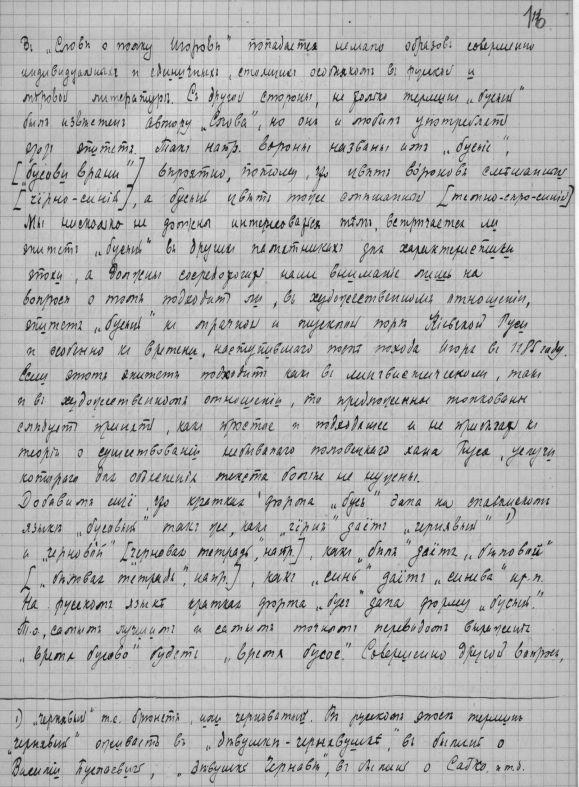 116
Въ „Словѣ о полку Игоровѣ" попадается немало образовъ совершенно
индивидуальныхъ и единичныхъ, стоящихъ особнякомъ въ русской и
мiровой литературѣ. Съ другой стороны, не только терминъ „бусый"
былъ извѣстенъ автору „Слова", но онъ и любилъ употреблять
этотъ эпитетъ. Такъ напр. вороны названы имъ „бусые",
["бусови врани"] вѣроятно, потому, что цвѣтъ вороновъ смѣшанный
[чёрно-синiй], а бусый цвѣтъ тоже смѣшанный [темно-сѣро-синiй]
Мы нисколько не должны интересоваться тѣмъ, встрѣчается ли
эпитетъ „бусый" въ другихъ памятникахъ для характеристики
эпохи, а должны сосредоточить наше вниманiе лишь на
вопросѣ о томъ подходитъ ли, въ художественномъ отношенiи,
эпитетъ „бусый" къ мрачной и тусклой порѣ Кiевской Руси
и особенно къ времени, наступившаго послѣ похода Игоря въ 1185 году.
Если этотъ эпитетъ подходитъ какъ въ лингвистическомъ, такъ
и въ художественномъ отношенiи, то предложенное толкованiе
слѣдуетъ принять, какъ простое и подходящее и не прибѣгать къ
теорiи о существованiи небывалаго половецкаго хана Буса, услуги
котораго для объясненiя текста болѣе не нужны.
Добавимъ ещё, что краткая форма „бусъ" дала на славянскомъ
языкѣ „бусовый" такъ же, какъ „чёрный" даётъ „чернявый" 1)
и „черновой" [черновая тетрадь, напр.], какъ „бѣлъ" даётъ „бѣловой"
[„бѣловая тетрадь", напр.], какъ „синь" даётъ „синева" и пр.
На русскомъ языкѣ краткая форма „бусъ" дала форму „бусый."
Т.о., самымъ лучшимъ и самымъ точнымъ переводомъ выраженiя
„время бусово" будетъ „время бусое". Совершенно другой вопросъ,
1) „чернявый" т.е. брюнетъ, или черноватый. Въ русскомъ эпосѣ терминъ
„чернявый" оживаетъ въ „дѣвушкѣ-чернавушкѣ," въ былинѣ о
Василiи Буслаевичѣ, „дѣвушкѣ Чернавѣ", въ былинѣ о Садко, и т.д.